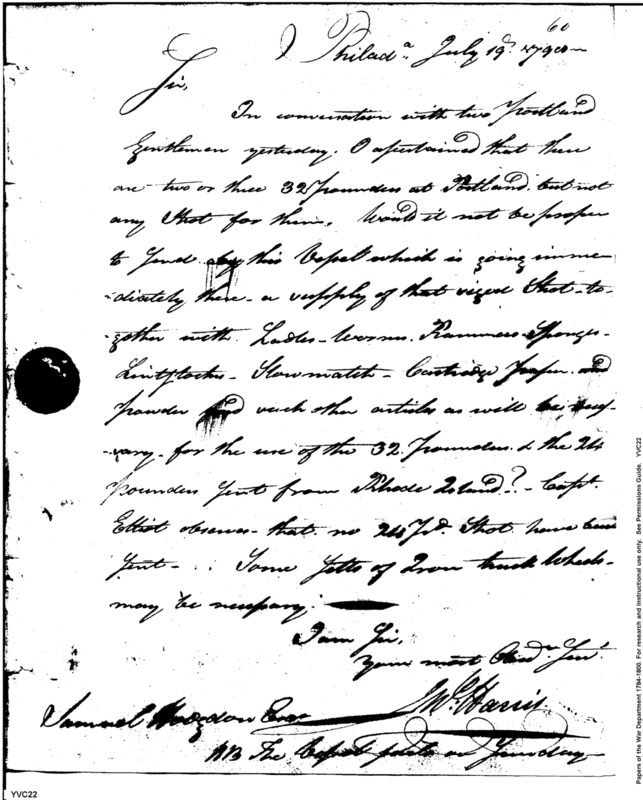 60
Philada. July 19th
Sir,
In conversation with two Portland
Gentlemen yesterday. I ascertained that there
are two or three 32 pounders at Portland but not
any Shot for them. Would it not be proper
to Send by this Vessel which is going imme
diately there - a supply of that sized Shot - to-
gether with Ladles - Worms. Rammers - Sponges -
Lintstocks - Slowmatch - Cartridge paper. and
powder and such other articles as will be neces
sary. for the use of the 32 pounders & the 24
pounders Sent from Rhode Island? - Capt.
Elliot observes - that no 24 Pd. Shot have been
Sent - Some Setts of Iron truck Wheels -
may be necessary.
I am Sir,
Your most Obedt. Servt.
Jno. Harris
Samuel Hodgdon Esqr
NB The Vessel sails on Sunday
Papers of the War Department 1784-1800. For research and instructional use only. See Permissions Guide. YVC22
YVC22